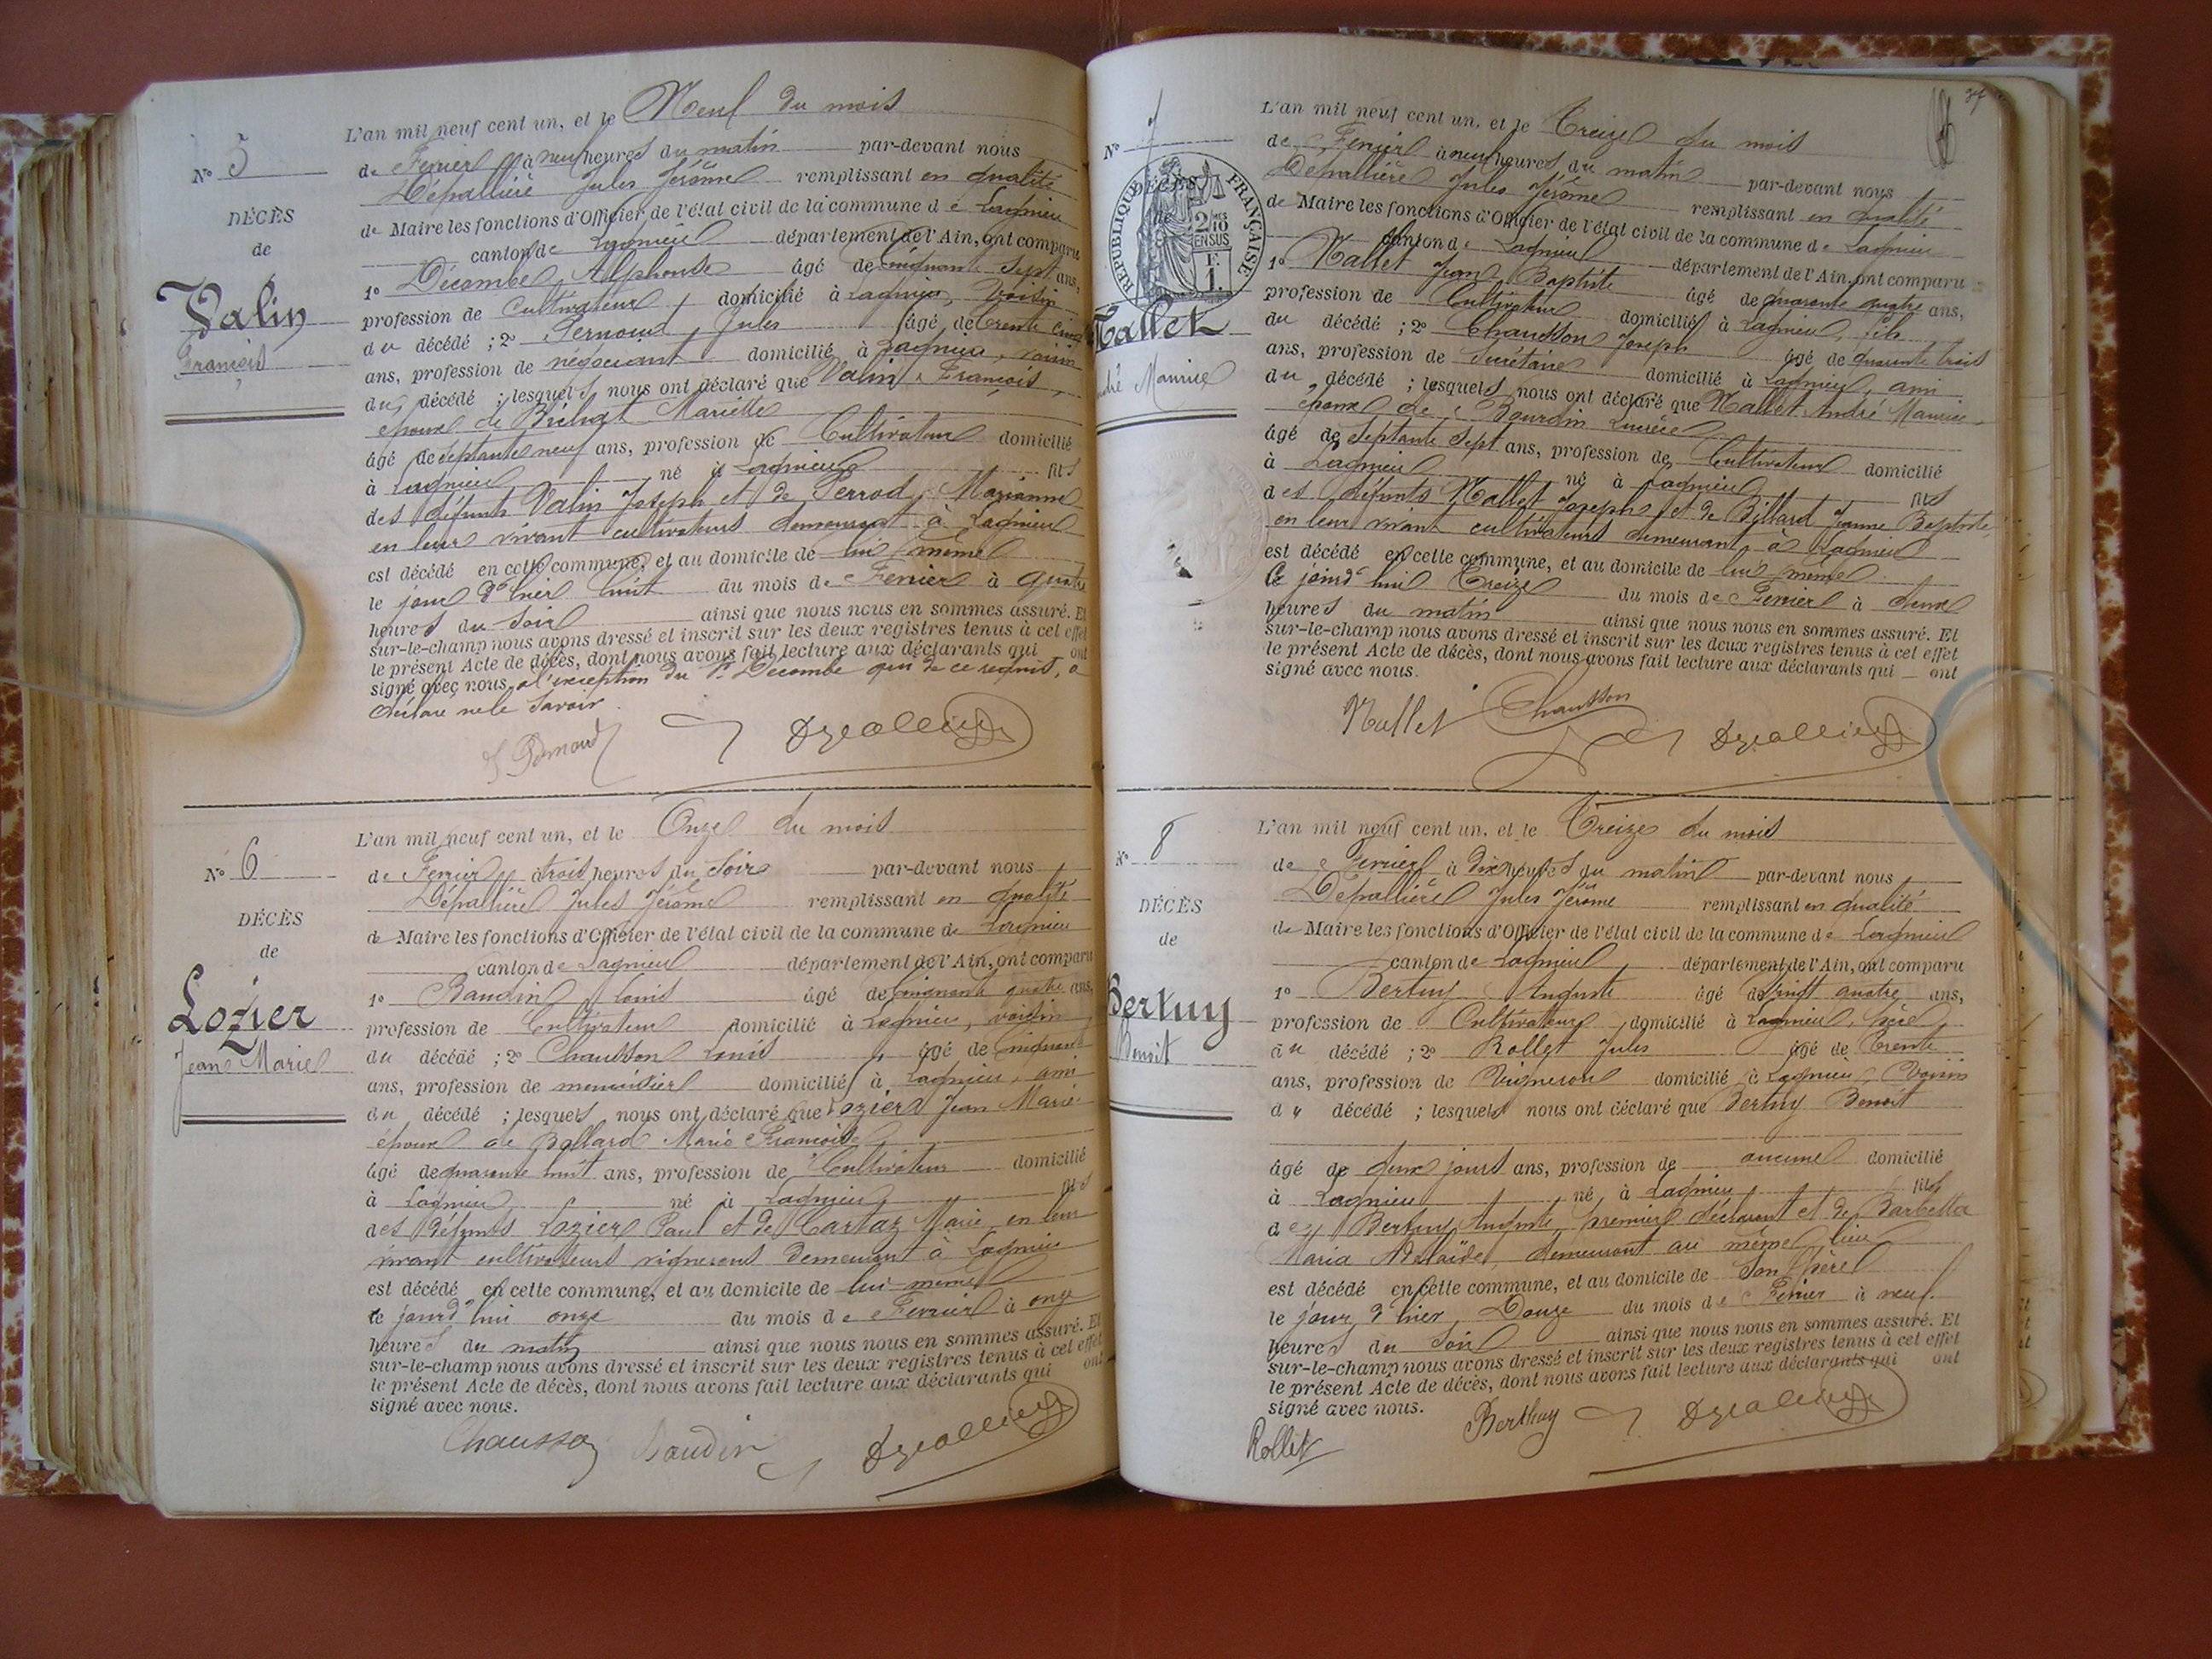 N° 5
DÉCÈS
de
Valin
François
L'an mil neuf cent un, et le Neuf du mois
de Fevrier à neuf heures du matin par-devant nous
Dépallière Jules Jérôme remplissant en qualité
de Maire les fonctions d'Officier de l'état civil de la commune de Lagnieu
canton de Lagnieu département de l'Ain, ont comparu
1° Décombe Alphonse âgé de cinquante sept ans,
profession de Cultivateur, domicilié à Lagnieu, voisin
du décédé ; 2° Pernoud, Jules âgé de trente cinq
ans, profession de négociant domicilié à Lagnieu, voisin
du décédé ; lesquels nous ont déclaré que Valin François,
époux de Mariette
âgé de septante neuf ans, profession de Cultivateur domicilié
à Lagnieu né à Lagnieu fils
des défunts Valin Joseph et de Perrod, Marianne
en leur vivant cultivateurs demeurant à Lagnieu
est décédé en cette commune, et au domicile de lui même
le jour d'hier huit du mois de Fevrier à quatre
heures du soir ainsi que nous nous en sommes assuré. Et
sur-le-champ nous avons dressé et inscrit sur les deux registres tenus à cet effet
le présent Acte de décès, dont nous avons fait lecture aux déclarants qui ont
signé avec nous, à l'exception du Sr Décombe qui de ce requis, a
déclaré ne le savoir.
J. Pernoud
N° 6
DÉCÈS
de
Lozier
Jean Marie
L'an mil neuf cent un, et le Onze du mois
de Fevrier à trois heures du soir par-devant nous
Dépallière Jules Jérôme remplissant en qualité
de Maire les fonctions d'Officier de l'état civil de la commune de Lagnieu
canton de Lagnieu département de l'Ain, ont comparu
1° Baudin Louis âgé de cinquante quatre ans,
profession de Cultivateur domicilié à Lagnieu, voisin
du décédé ; 2° Chausson Louis âgé de cinquante
ans, profession de menuisier domicilié à Lagnieu, ami
du décédé ; lesquels nous ont déclaré que Lozier Jean Marie
époux de Ballard Marie Françoise
âgé de quarante huit ans, profession de Cultivateur domicilié
à Lagnieu né à Lagnieu fils
des défunts Lozier Paul et de Cartaz Marie en leur
vivant cultivateurs vignerons demeurant à Lagnieu
est décédé en cette commune, et au domicile de lui même
le jourd'hui onze du mois de Fevrier à onze
heures du matin ainsi que nous nous en sommes assuré. Et
sur-le-champ nous avons dressé et inscrit sur les deux registres tenus à cet effet
le présent Acte de décès, dont nous avons fait lecture aux déclarants qui ont
signé avec nous.
Chausson Baudin
37
N° 7
DÉCÈS
de
RÉPUBLIQUE FRANÇAISE
2/10 EN SUS
F. 1.
Mallet
dré Maurice
L'an mil neuf cent un, et le Treize du mois
de Fevrier à neuf heures du matin par-devant nous
Dépallière Jules Jérôme remplissant en qualité
de Maire les fonctions d'Officier de l'état civil de la commune de Lagnieu
canton de Lagnieu département de l'Ain, ont comparu
1° Mallet Jean Baptiste âgé de quarante quatre ans,
profession de Cultivateur domicilié à Lagnieu, fils
du décédé ; 2° Chausson Joseph âgé de quarante trois
ans, profession de Secrétaire domicilié à Lagnieu, ami
du décédé ; lesquels nous ont déclaré que Mallet André Maurice
époux de Bourdin Lucrèce
âgé de septante sept ans, profession de Cultivateur domicilié
à Lagnieu né à Lagnieu fils
des défunts Mallet Joseph et de Billard Jeanne Baptiste,
en leur vivant cultivateurs demeurant à Lagnieu
est décédé en cette commune, et au domicile de lui même
le jourd'hui Treize du mois de Fevrier à deux
heures du matin ainsi que nous nous en sommes assuré. Et
sur-le-champ nous avons dressé et inscrit sur les deux registres tenus à cet effet
le présent Acte de décès, dont nous avons fait lecture aux déclarants qui ont
signé avec nous.
Mallet Chausson
N° 8
DÉCÈS
de
Bertuy
Benoit
L'an mil neuf cent un, et le Treize du mois
de Fevrier à dix heures du matin par-devant nous
Dépallière Jules Jérôme remplissant en qualité
de Maire les fonctions d'Officier de l'état civil de la commune de Lagnieu
canton de Lagnieu département de l'Ain, ont comparu
1° Bertuy Auguste âgé de vingt quatre ans,
profession de Cultivateur, domicilié à Lagnieu, père
du décédé ; 2° Rollet Jules âgé de trente
ans, profession de Vigneron domicilié à Lagnieu, Voisin
du décédé ; lesquels nous ont déclaré que Bertuy Benoit
âgé de deux jours ans, profession de aucune domicilié
à Lagnieu né à Lagnieu fils
de Bertuy Auguste, premier déclarant et de Barbetta
Maria Adelaïde, demeurant au même lieu
est décédé en cette commune, et au domicile de son père
le jour d'hier Douze du mois de Fevrier à neuf
heures du soir ainsi que nous nous en sommes assuré. Et
sur-le-champ nous avons dressé et inscrit sur les deux registres tenus à cet effet
le présent Acte de décès, dont nous avons fait lecture aux déclarants qui ont
signé avec nous.
Rollet Berthuy